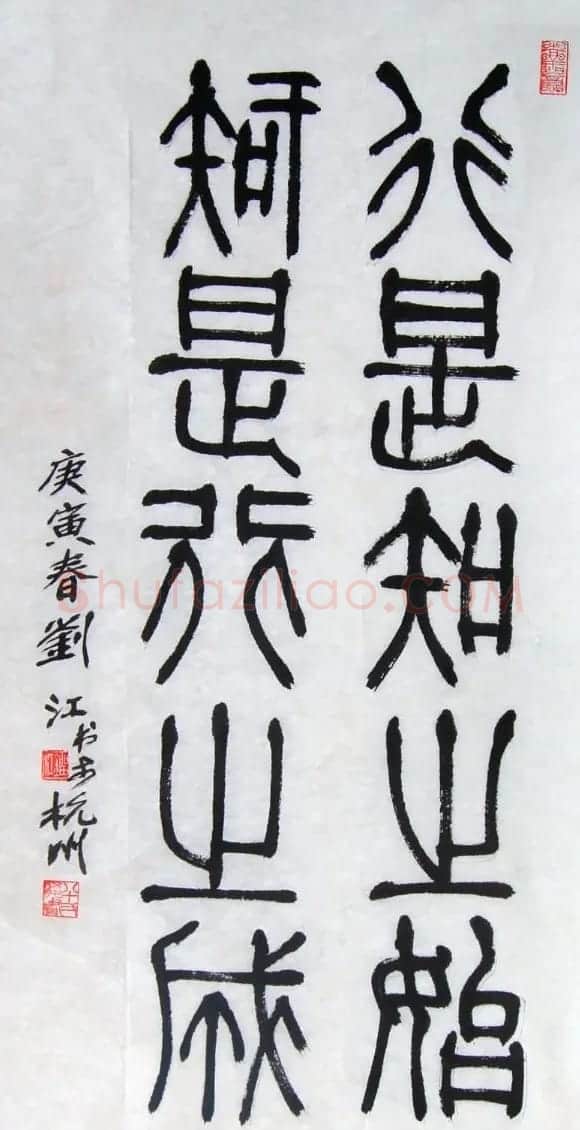 行是知之始
知是行之成
庚寅春劉江书于杭州
Shufaziliao.COM